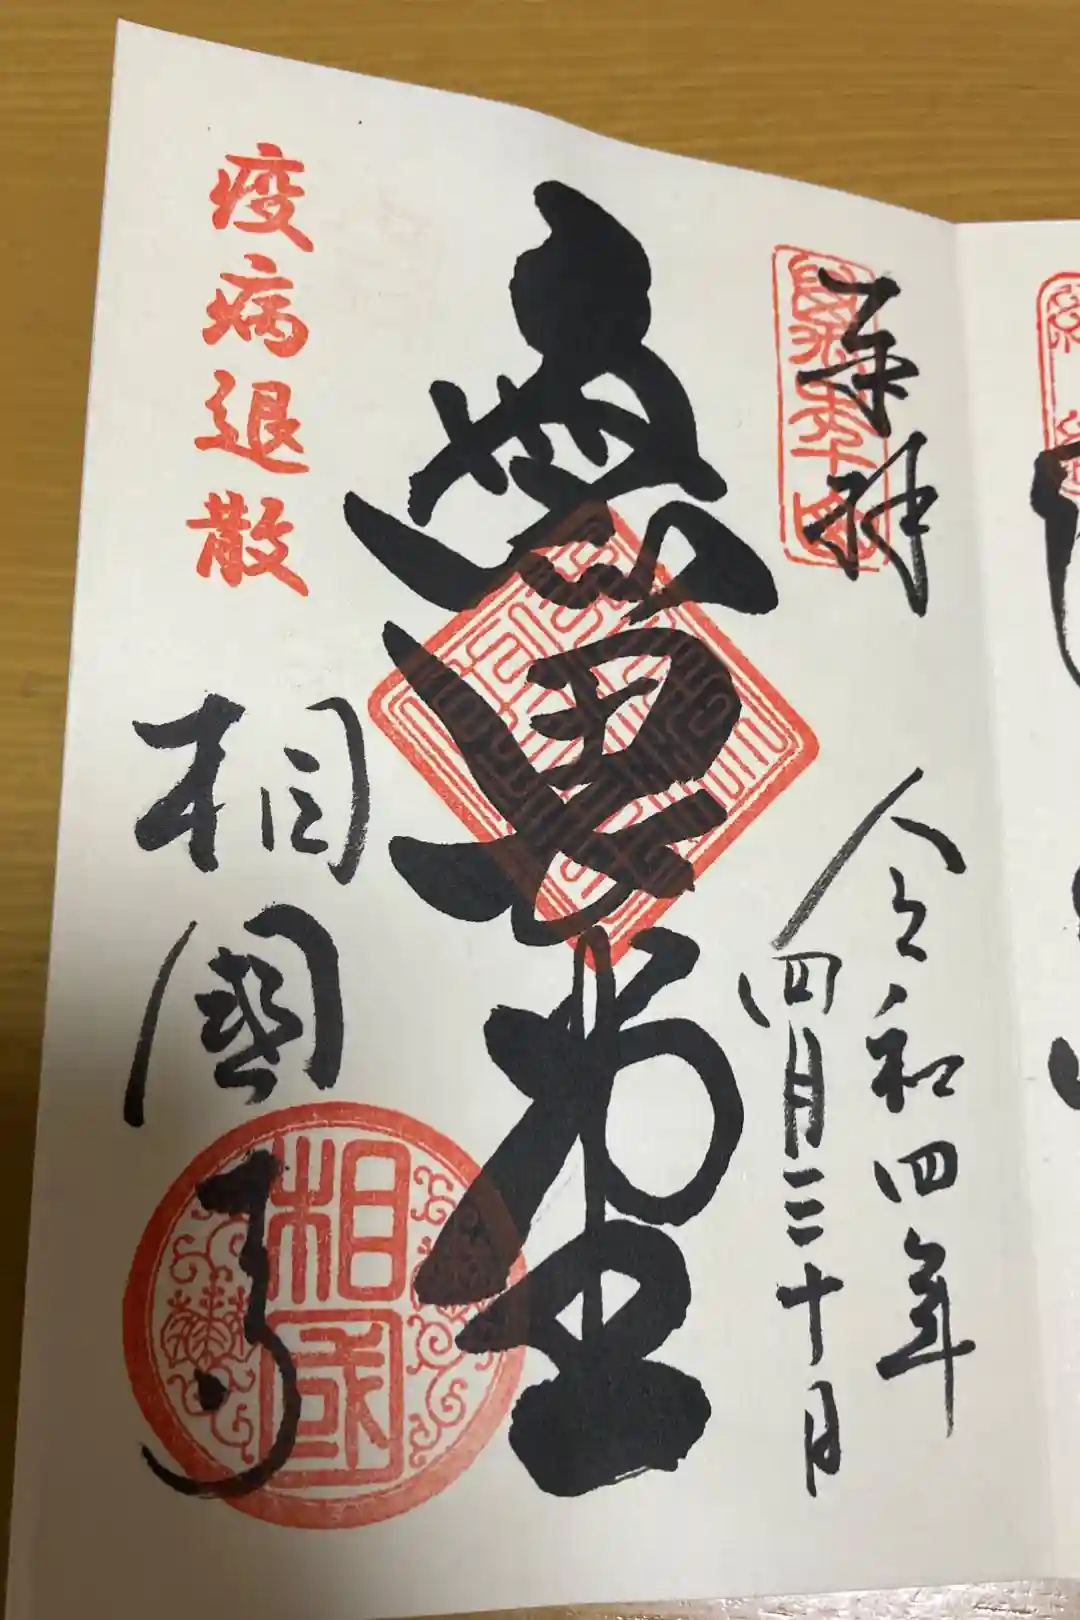 奉拝
令和四年
四月三十日
無畏堂
疫病退散
相國寺
相國